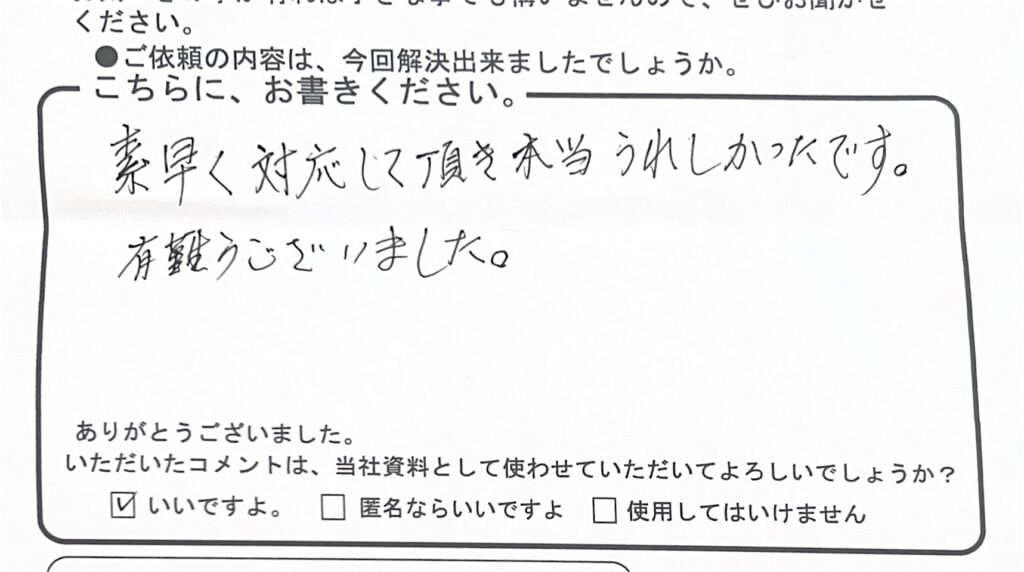 ください。
●ご依頼の内容は、今回解決出来ましたでしょうか。
こちらに、お書きください。
素早く対応して頂き本当うれしかったです。
有難うございました。
ありがとうございました。
いただいたコメントは、当社資料として使わせていただいてよろしいでしょうか?
☑ いいですよ。 □ 匿名ならいいですよ □ 使用してはいけません